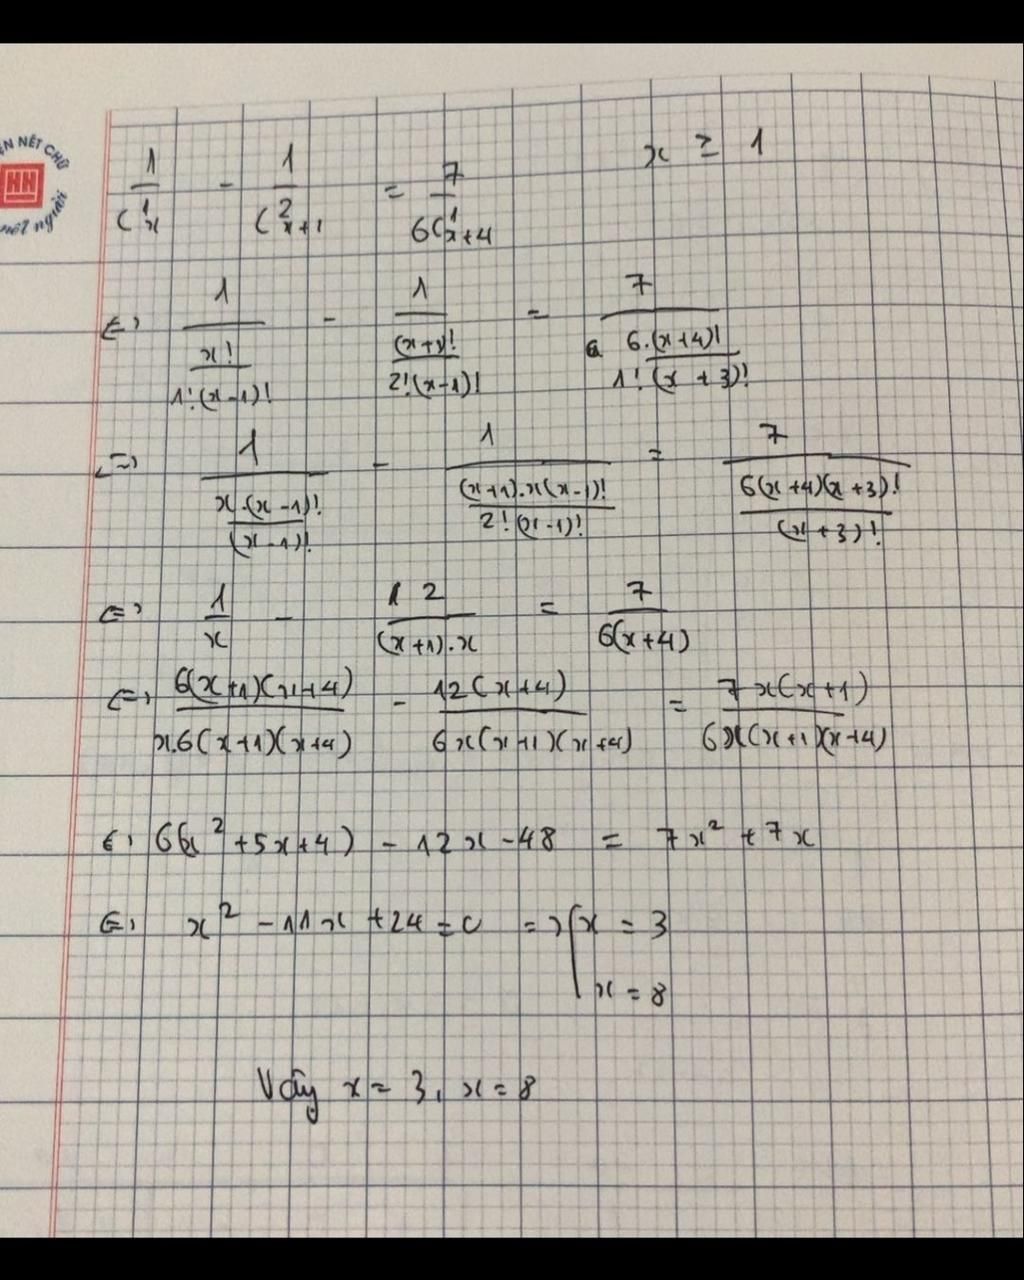 ỆN NẾT CHỮ
HN
nết người
1/C¹ₓ - 1/C²ₓ₊₁ = 7/6C¹ₓ₊₄ x ≥ 1
⇔ 1/(x!/1!.(x-1)!) - 1/((x+1)!/2!(x-1)!) = 7/(6.(x+4)!/1!(x+3)!)
⇔ 1/(x.(x-1)!/(x-1)!) - 1/((x+1).x(x-1)!/2!(x-1)!) = 7/(6(x+4)(x+3)!/(x+3)!)
⇔ 1/x - 2/(x+1).x = 7/6(x+4)
⇔ 6(x+1)(x+4)/x.6(x+1)(x+4) - 12(x+4)/6x(x+1)(x+4) = 7x(x+1)/6x(x+1)(x+4)
⇔ 6(x²+5x+4) - 12x - 48 = 7x² + 7x
⇔ x² - 11x + 24 = 0 => [x = 3
x = 8
Vậy x = 3, x = 8